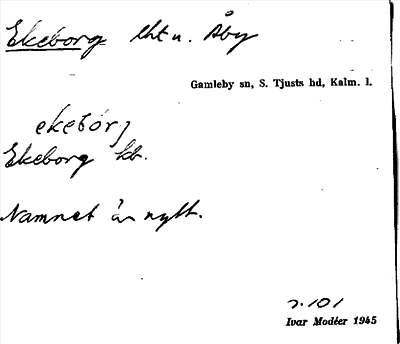 Ekeborg lht u. Åby
Gamleby sn, S. Tjusts hd, Kalm. l.
ekebórj
Ekeborg kb.
Namnet är nytt.
s. 101
Ivar Modéer 1945